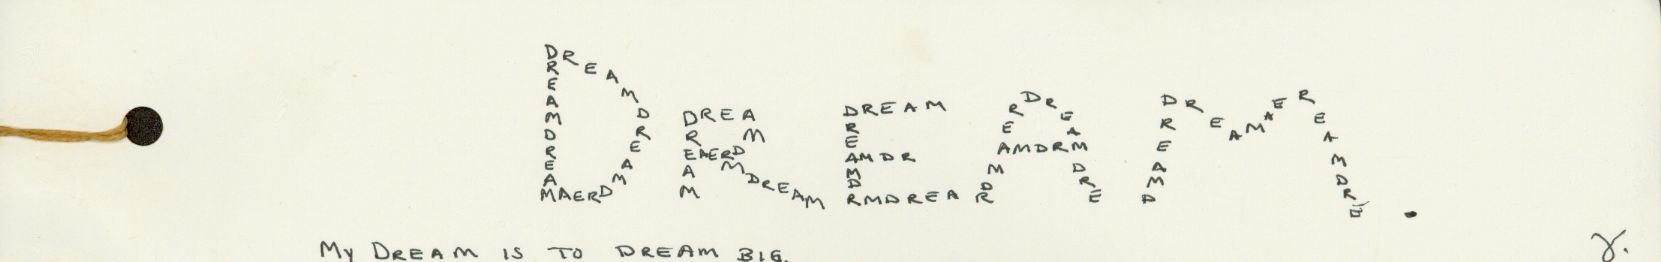 DREAM.
MY DREAM IS TO DREAM BIG.
γ.